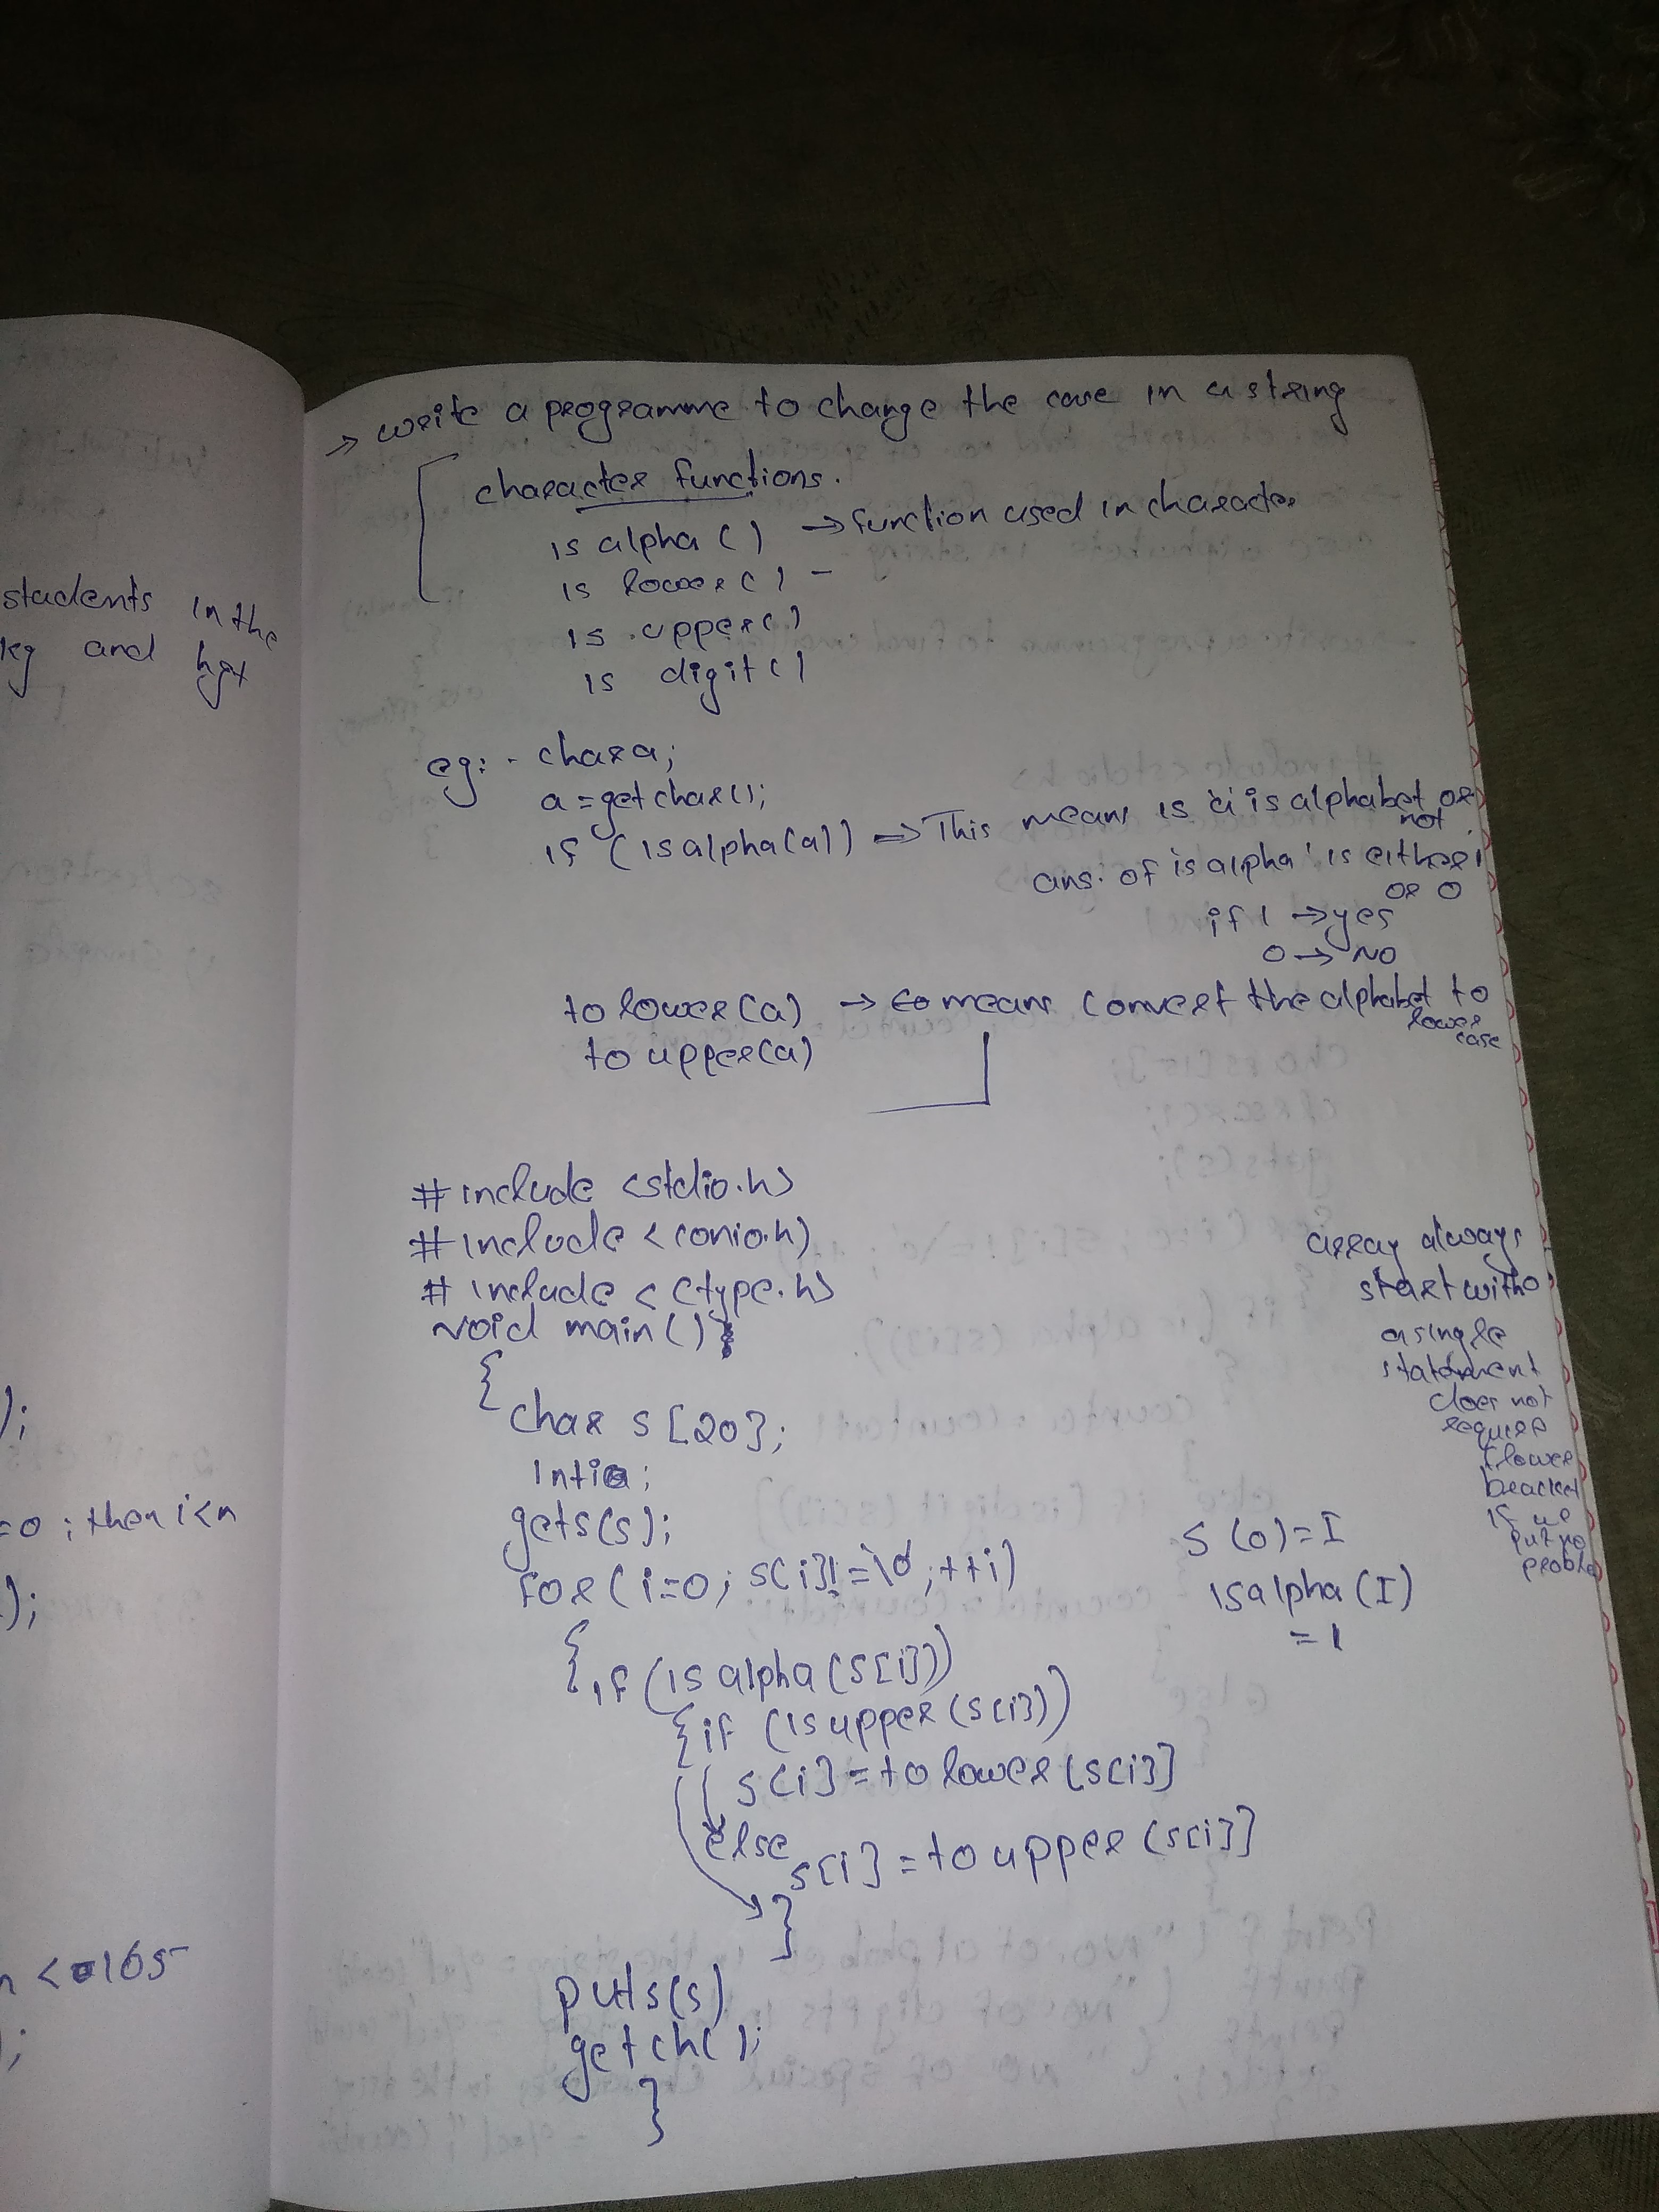 students in the
kg and hgt
);
=0 ; then i<n
);
n < 165
);
→ write a programme to change the case in a string
character functions.
is alpha ( ) → function used in character
is lower ( ) -
is upper( )
is digit ( )
eg: - char a;
a = getchar();
if (isalpha(a)) => This means is 'a' is alphabet or
not.
ans: of is alpha' is either 1
or 0
if 1 → yes
0 → NO
to lower (a) → to means convert the alphabet to
lower
case
to upper(a)
# include <stdio.h>
# include < conio.h)
# include < ctype.h>
void main ( )
{
char s [20];
int i ;
gets(s);
for ( i=0 ; s[i] != \0 ; ++i )
{ if (is alpha (s[i]))
{ if (is upper (s[i]))
s[i] = to lower (s[i]]
else
s[i] = to upper (s[i]]
}
puts(s)
getch( );
}
array always
start with 0
a single
statement
does not
require
flower
bracket
if we
put no
proble
s (0) = I
isalpha (I)
= 1